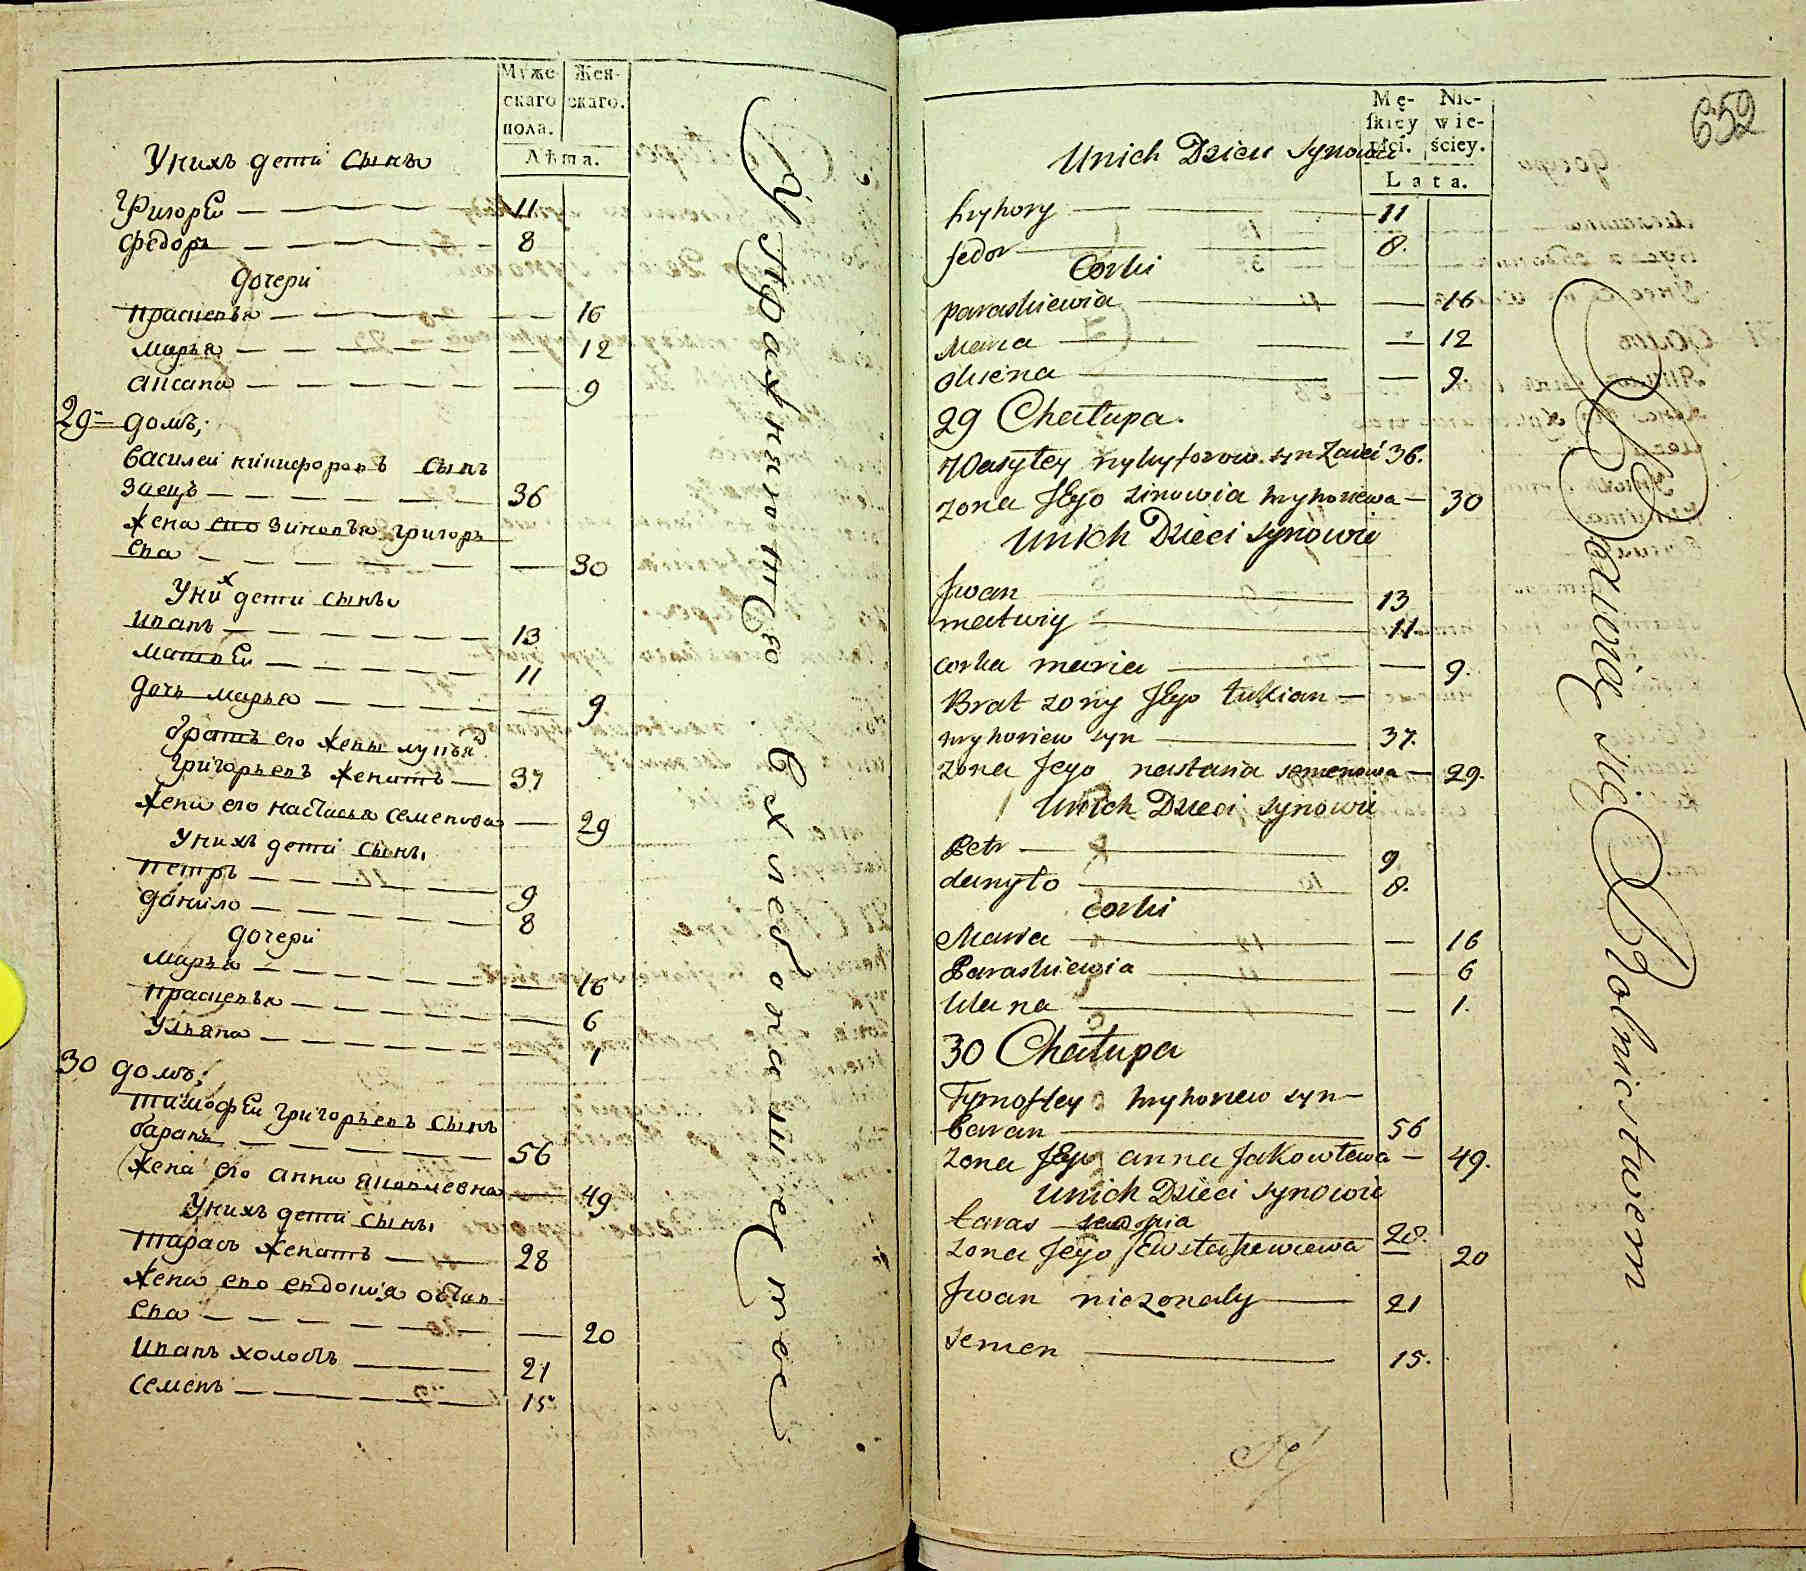 Мужескаго пола. Женскаго.
Лѣта.
Унихъ дети сынъи
Григорѣй — 11
Федоръ — 8
дочери
прасцевъя — 16
маръя — 12
аксана — 9
29 домъ;
Василеи никифоровъ сынъ
Заецъ — 36
жена его зиновъя григоръ
ева — 30
Унихъ дети сынъи
иванъ — 13
матвѣй — 11
дочь маръя — 9
братъ его жены лукъянъ
григоръевъ женатъ — 37
жена его настасья семенова — 29
Унихъ дети сынъи
петръ — 9
данило — 8
дочери
маръя — 16
прасцевъя — 6
ульяна — 1
30 домъ;
тимофѣй григоръевъ сынъ
баранъ — 56
жена его анна яковлевна — 49
Унихъ дети сынъи
тарасъ женатъ — 28
жена его евдокия остап
ева — 20
иванъ холостъ — 21
семенъ — 15
Упражняются в хлебопашестве
652
Mę-skiey płci. Nie-wie-ściey.
Lata.
Unich Dzieci Synowie
hryhory — 11
fedor — 8.
Corki
paraskiewia — 16
Maria — 12
oksena — 9
29 Chałupa.
Wasyley nykyforow. syn Zaiec 36.
zona Jego zinowia hryhoriewa — 30
Unich Dzieci synowie
Jwan — 13
matwiy — 11
corka maria — 9.
Brat zony Jego łukian —
hryhoriew syn — 37.
zona Jego nastasia semenowa — 29.
Unich Dzieci synowie
Petr — 9
danyło — 8.
corki
Maria — 16
Paraskiewia — 6
Ulana — 1.
30 Chałupa
Tymofiey hryhoriew syn —
baran — 56
zona Jego anna Jakowlewa — 49.
Unich Dzieci synowie
taras — 28.
zona Jego Ewstafiewiewa 20
Jwan niezonaty — 21
semen — 15.
Bawią się Rolnictwem